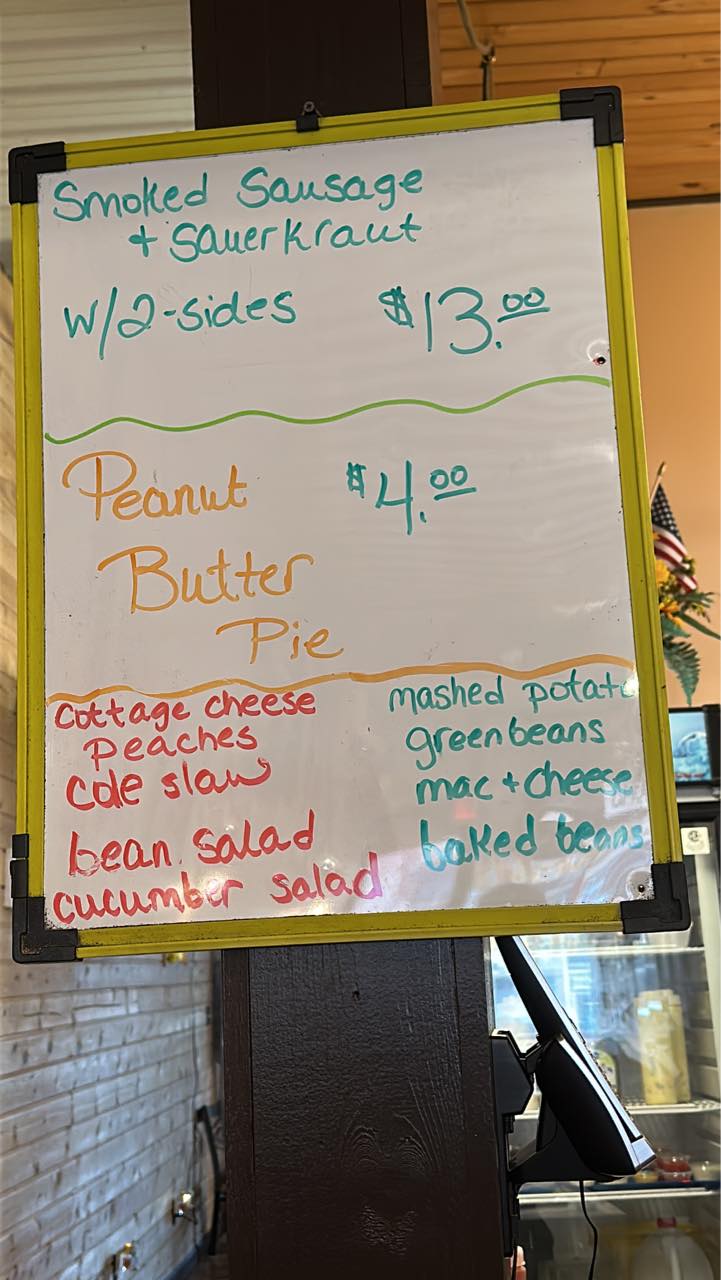 Smoked Sausage
+ Sauerkraut
w/2-sides $13.00
Peanut $4.00
Butter
Pie
cottage cheese
peaches
cole slaw
bean salad
cucumber salad
mashed potato
greenbeans
mac + cheese
baked beans